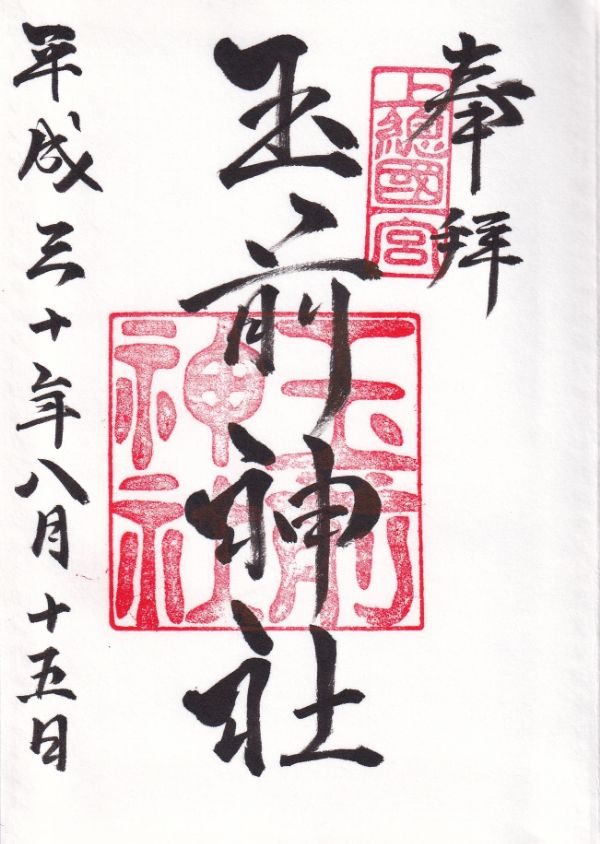 奉拝
上總國一宮
玉前神社
玉前神社
平成三十年八月十五日